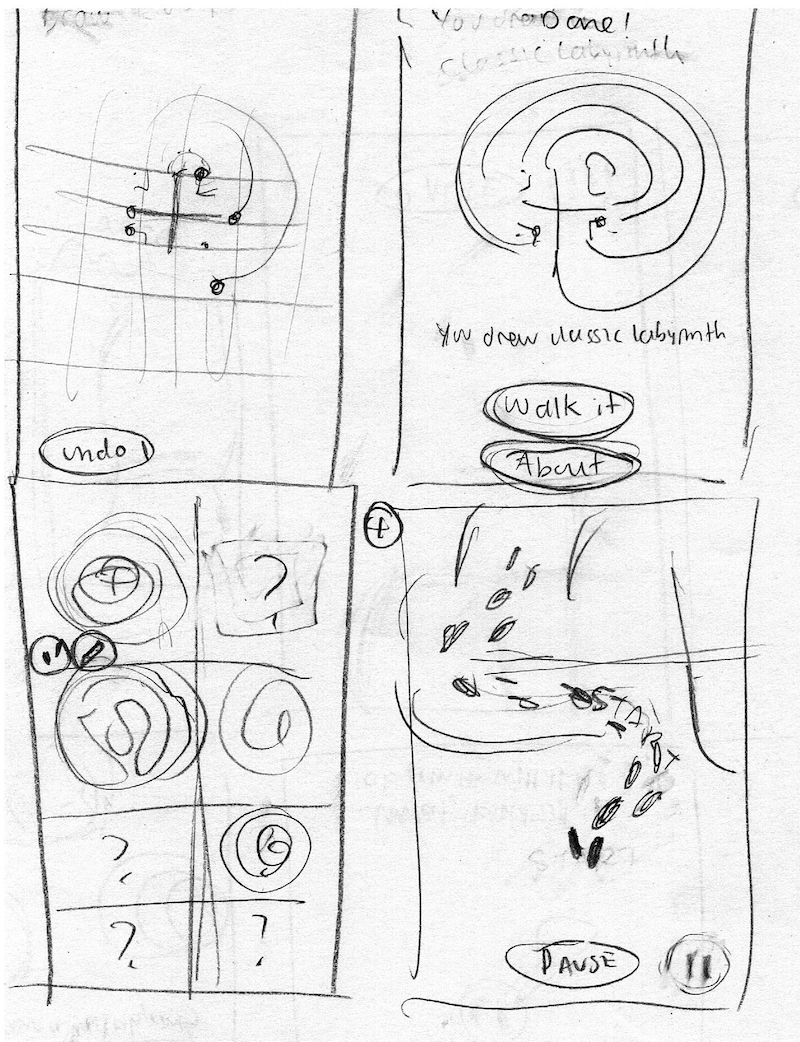 Draw
You drew Done!
classic labyrinth
You drew classic labyrinth
undo
Walk it
About
?
START
?
?
?
PAUSE